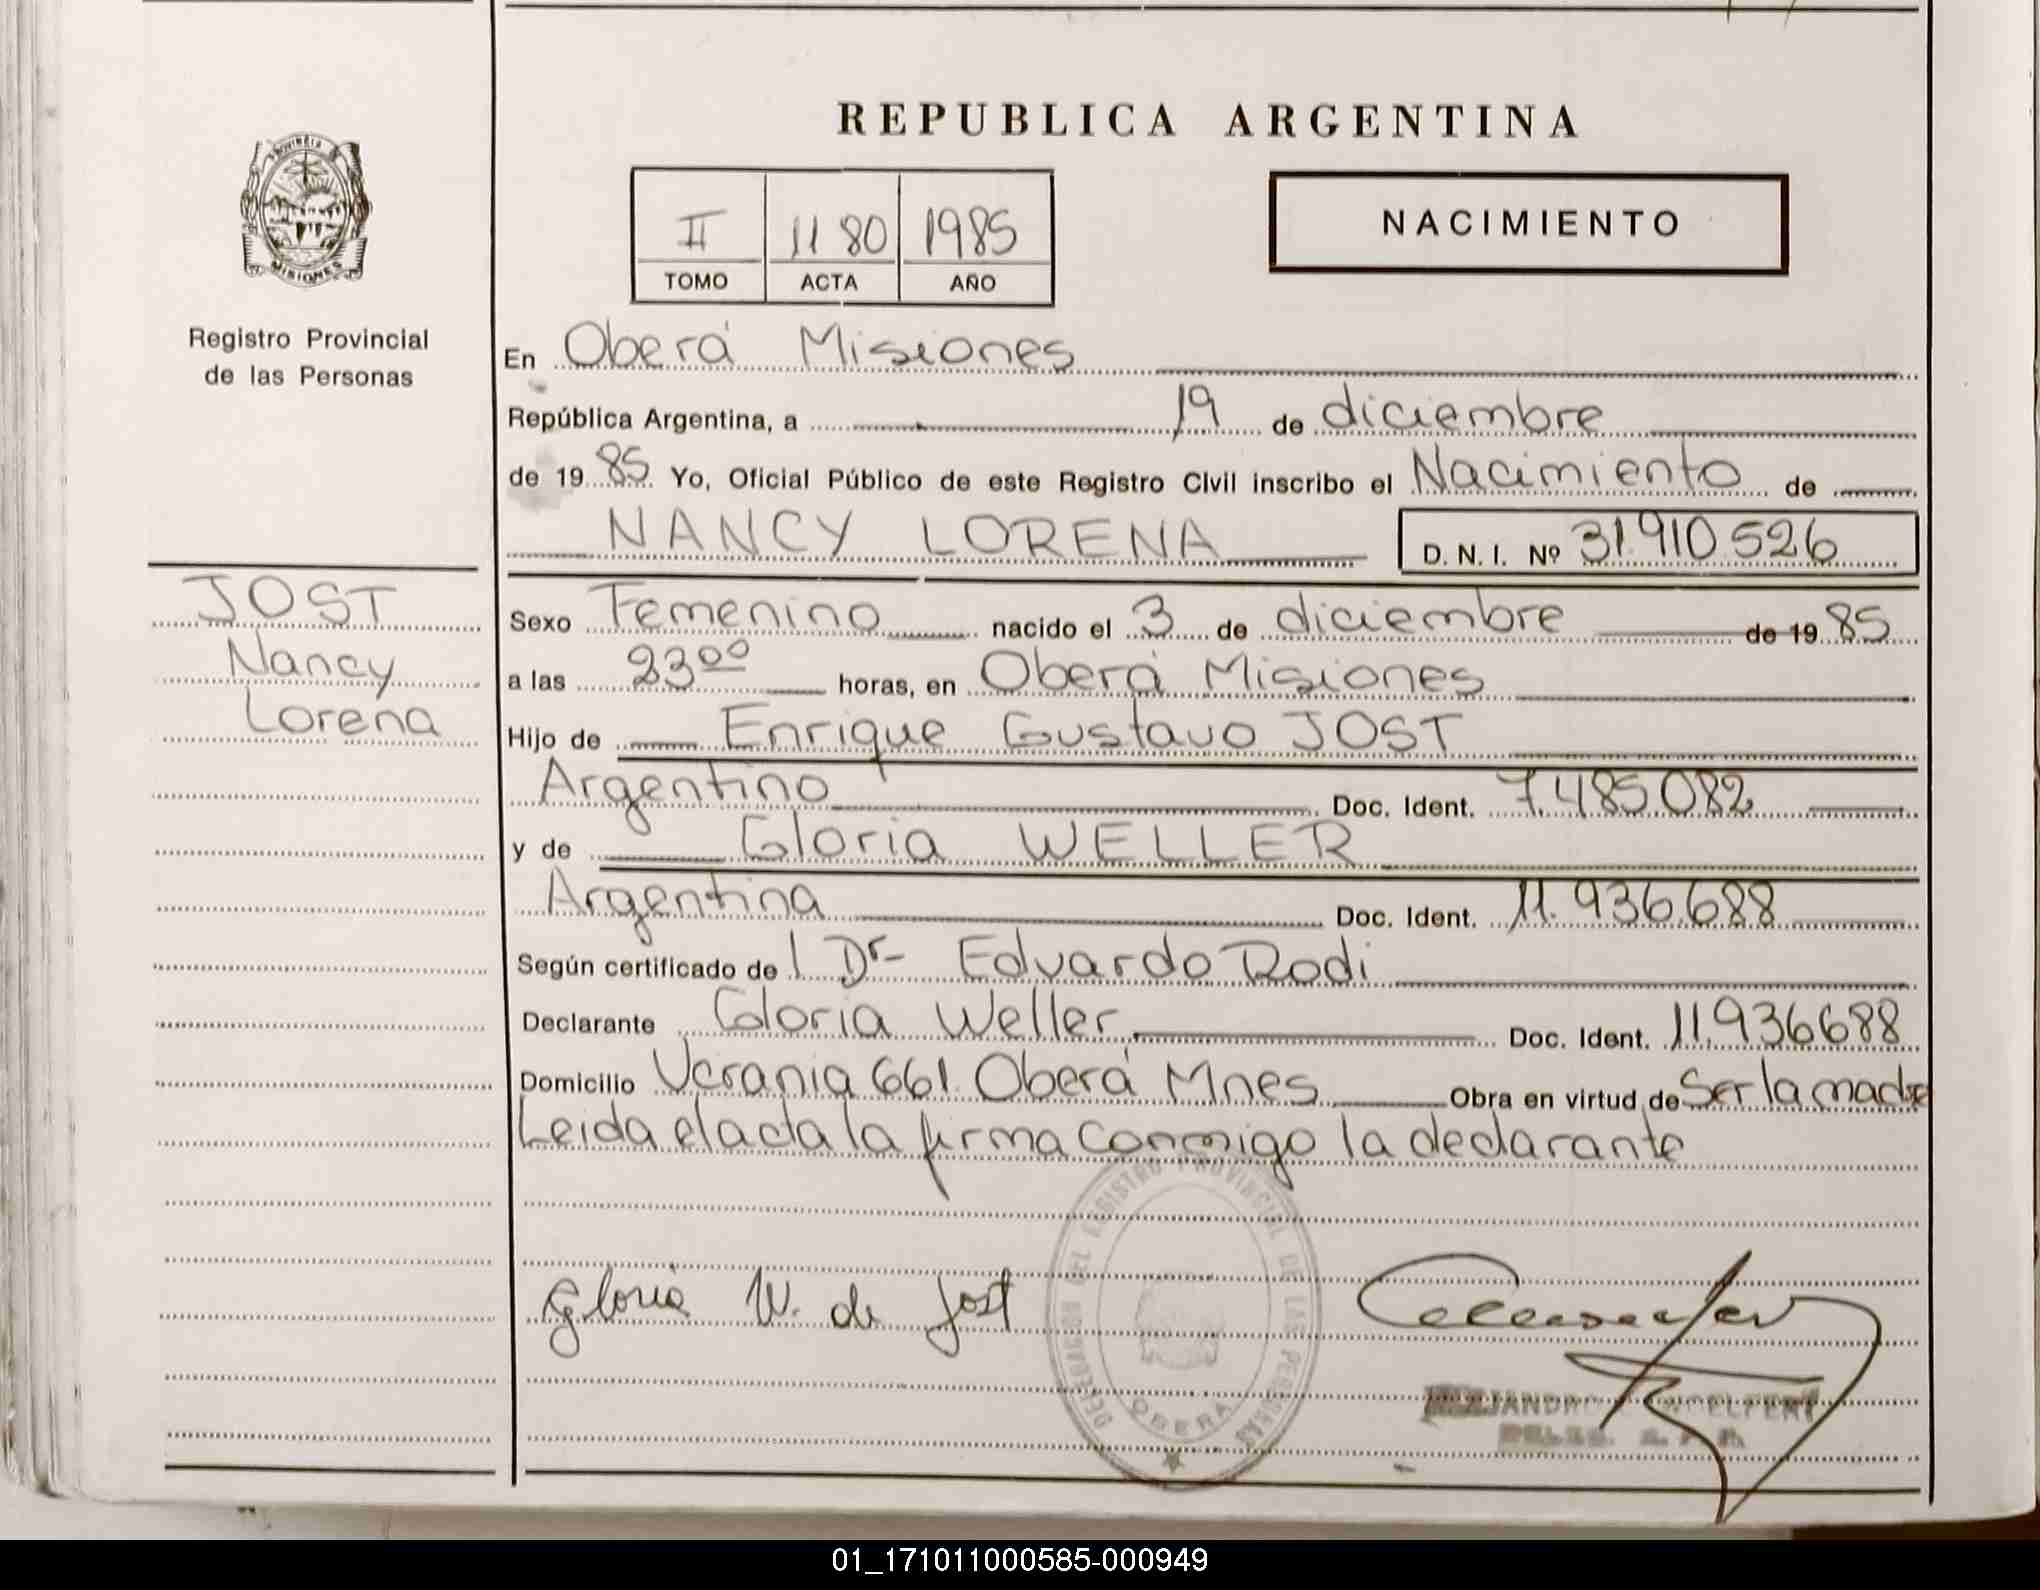 REPUBLICA ARGENTINA
PROVINCIA
MISIONES
Registro Provincial
de las Personas
II 1180 1985
TOMO ACTA AÑO
NACIMIENTO
En Oberá Misiones
República Argentina, a 19 de diciembre
de 1985 Yo, Oficial Público de este Registro Civil inscribo el Nacimiento de
NANCY LORENA D.N.I. Nº 31.910.526
JOST
Nancy
Lorena
Sexo Femenino nacido el 3 de diciembre de 1985
a las 23⁰⁰ horas, en Oberá Misiones
Hijo de Enrique Gustavo JOST
Argentino Doc. Ident. 7.485.082
y de Gloria WELLER
Argentina Doc. Ident. 11.936.688
Según certificado de l Dr Eduardo Rodi
Declarante Gloria Weller Doc. Ident. 11.936688
Domicilio Ucrania 661 Oberá Mnes Obra en virtud de Ser la madre
Leida el acta la firma conmigo la declarante
DELEGACION DEL REGISTRO PROVINCIAL DE LAS PERSONAS
OBERA
Gloria W. de Jost
01_171011000585-000949